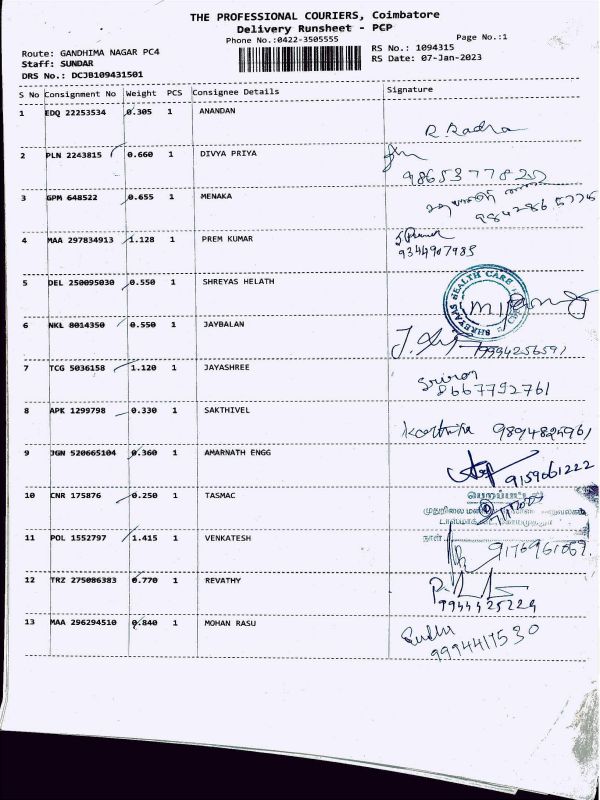 THE PROFESSIONAL COURIERS, Coimbatore
Delivery Runsheet - PCP
Phone No.:0422-3505555
Page No.:1
Route: GANDHIMA NAGAR PC4
RS No.: 1094315
Staff: SUNDAR
RS Date: 07-Jan-2023
DRS No.: DCJB109431501
S No Consignment No Weight PCS Consignee Details Signature
1 EDQ 22253534 0.305 1 ANANDAN
R. Radha
2 PLN 2243815 0.660 1 DIVYA PRIYA
3 GPM 648522 0.655 1 MENAKA
4 MAA 297834913 1.128 1 PREM KUMAR
9344907985
5 DEL 250095030 0.550 1 SHREYAS HELATH
SHREYAAS HEALTH CARE
6 NKL 8014350 0.550 1 JAYBALAN
9994256591
7 TCG 5036158 1.120 1 JAYASHREE
8667792761
8 APK 1299798 0.330 1 SAKTHIVEL
9 JGN 520665104 0.360 1 AMARNATH ENGG
9159061222
10 CNR 175876 0.250 1 TASMAC
நாள்
11 POL 1552797 1.415 1 VENKATESH
12 TRZ 275086383 0.770 1 REVATHY
13 MAA 296294510 0.840 1 MOHAN RASU
9994417530